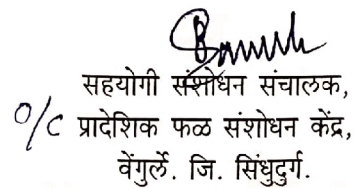 सहयोगी संशोधन संचालक,
O/C प्रादेशिक फळ संशोधन केंद्र,
वेंगुर्ले. जि. सिंधुदुर्ग.